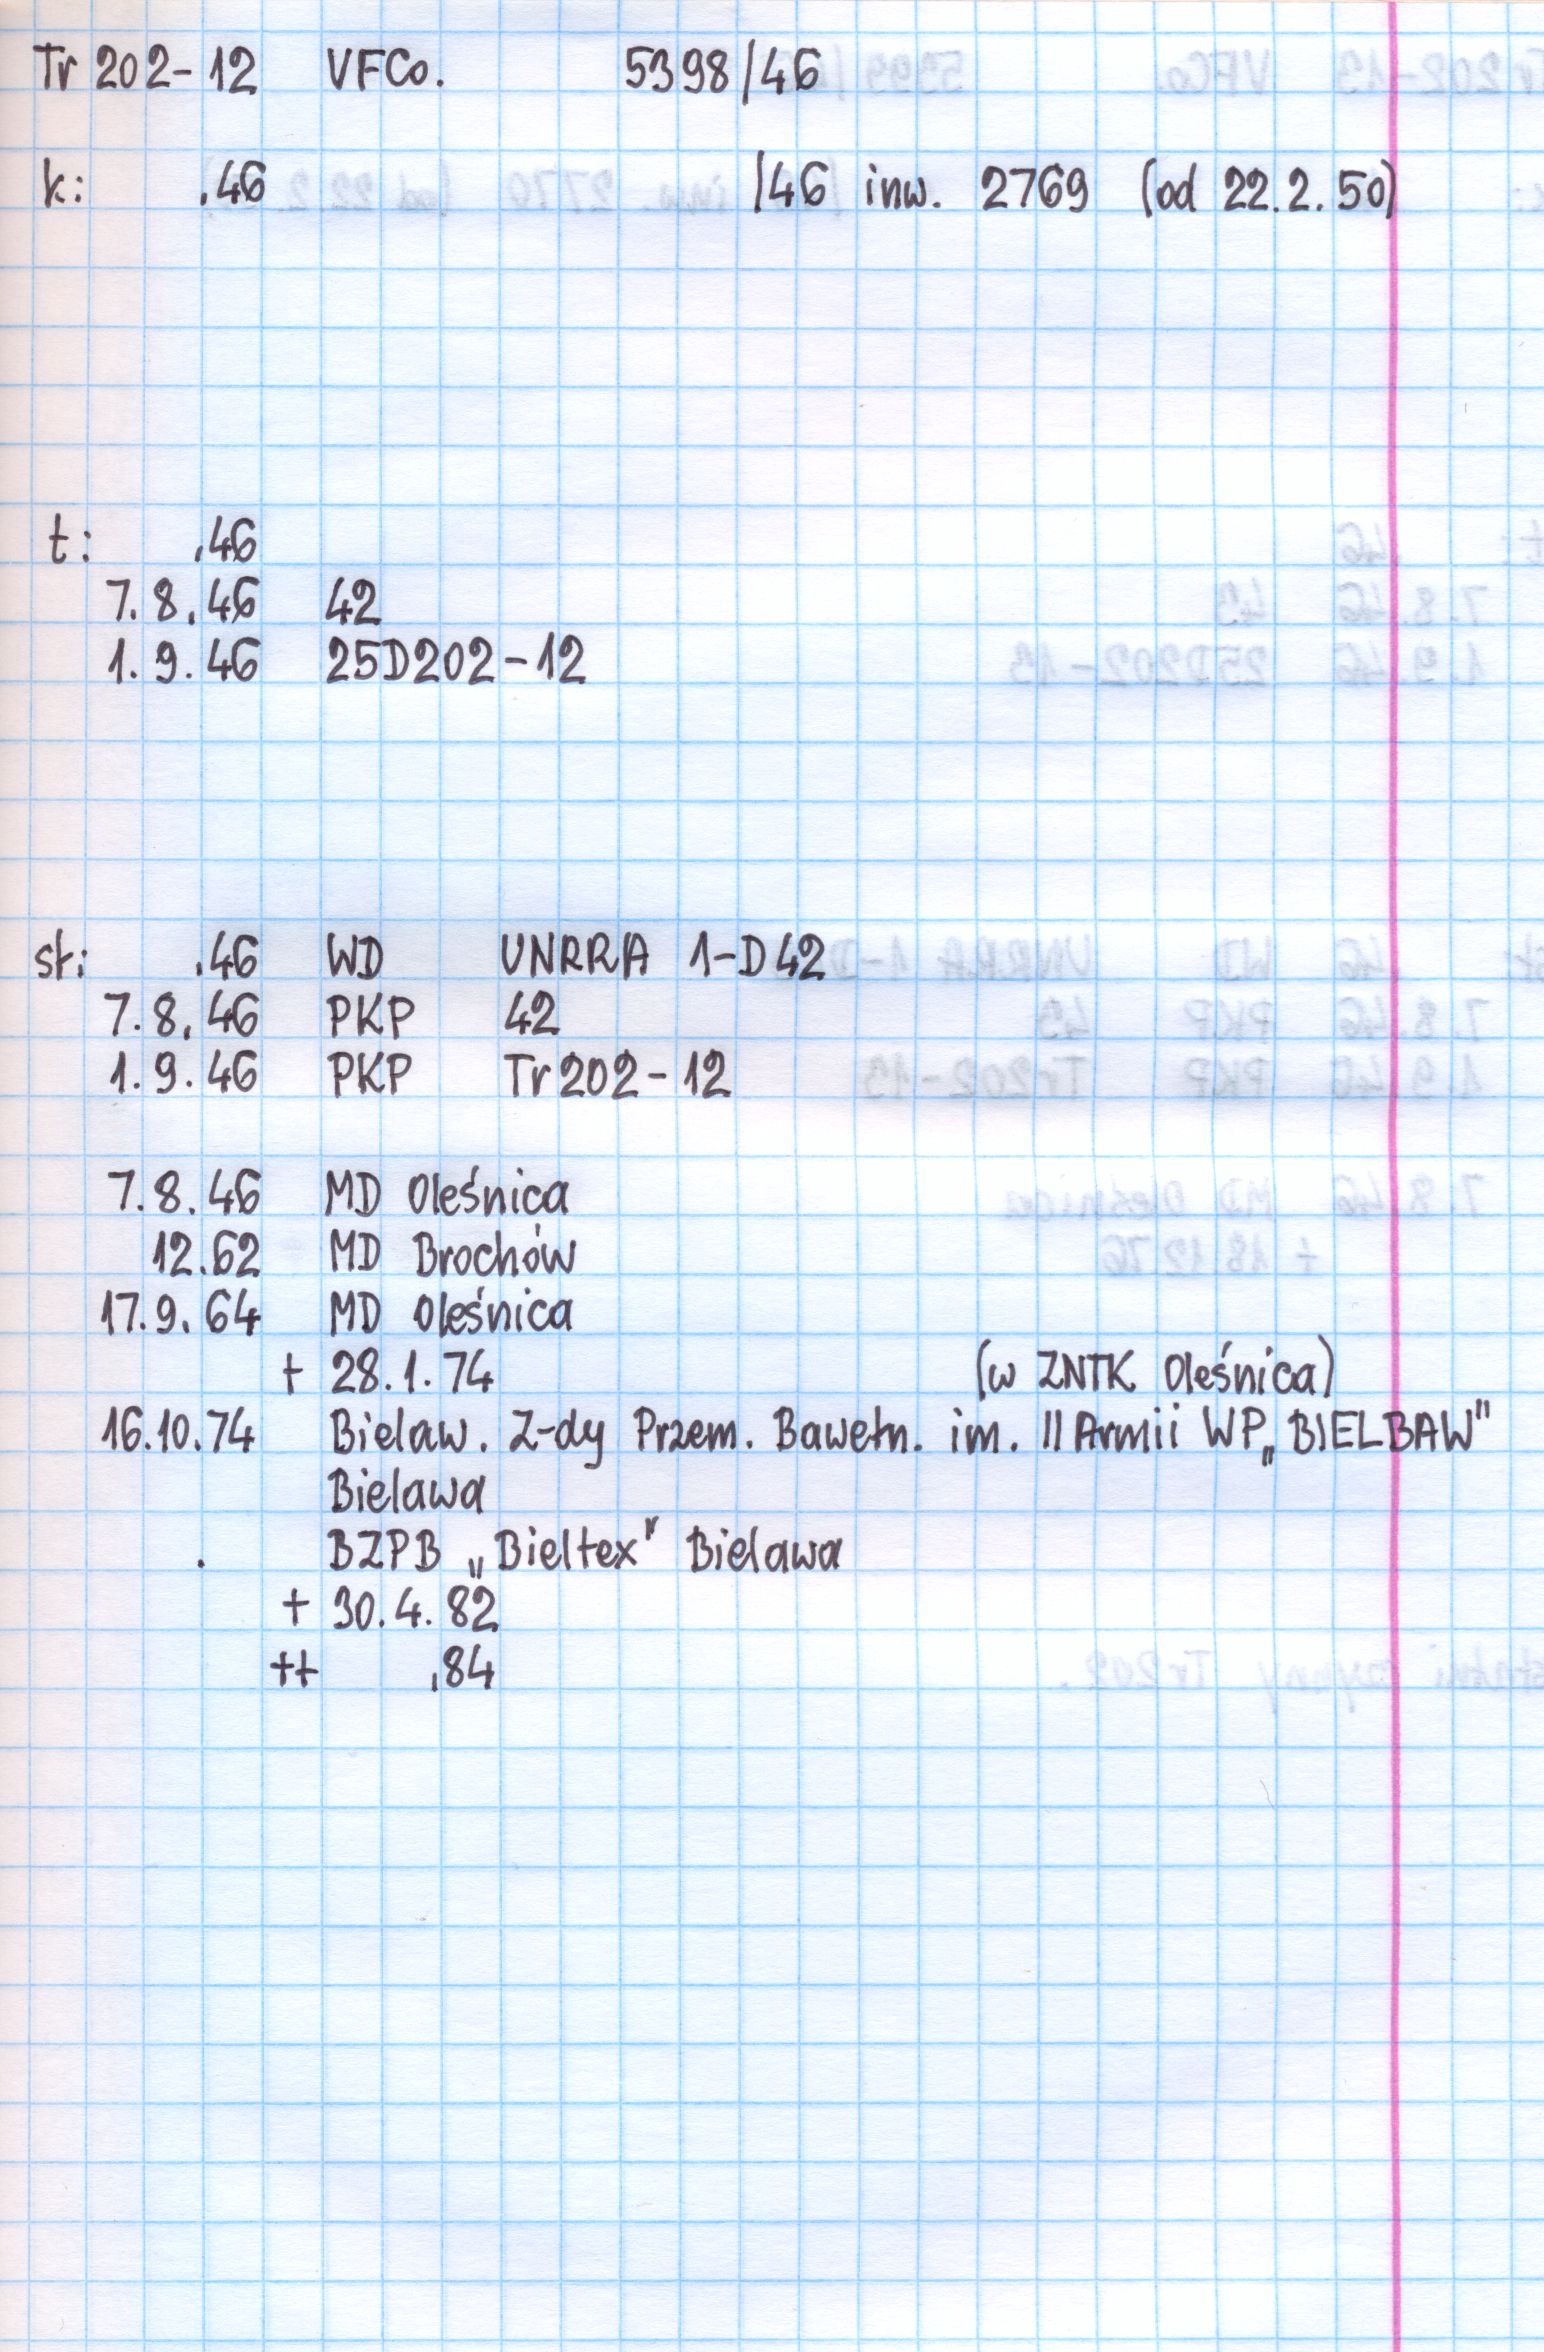 Tr 202-12 VFCo. 5398/46
k: .46 /46 inw. 2769 (od 22.2.50)
t: .46
7.8.46 42
1.9.46 25D202-12
st: .46 WD UNRRA 1-D42
7.8.46 PKP 42
1.9.46 PKP Tr202-12
7.8.46 MD Oleśnica
12.62 MD Brochów
17.9.64 MD Oleśnica
+ 28.1.74 (w ZNTK Oleśnica)
16.10.74 Bielaw. Z-dy Przem. Bawełn. im. II Armii WP „BIELBAW"
Bielawa
. BZPB „Bieltex" Bielawa
+ 30.4.82
++ .84